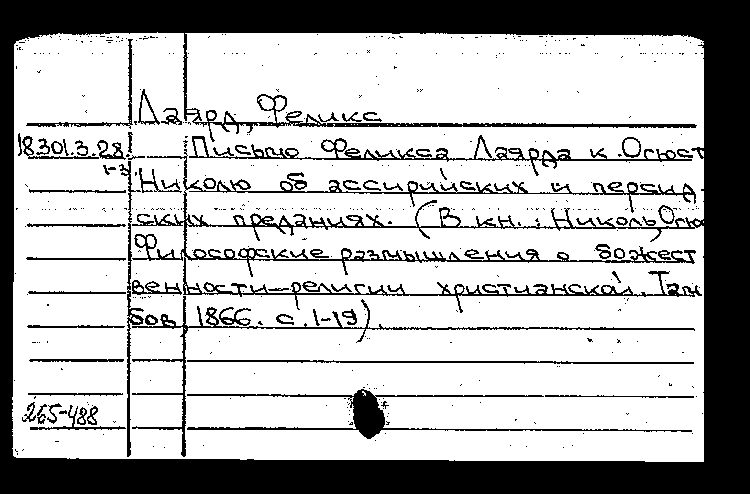 Лаярд, Феликс
18.301.3.28 Письмо Феликса Лаярда к Огюст
1-3 Николю об ассирийских и персид-
ских преданиях. (В кн.: Николь, Огю
Философские размышления о божест
венности религии христианской. Там
бов, 1866. с. 1-19).
265-488